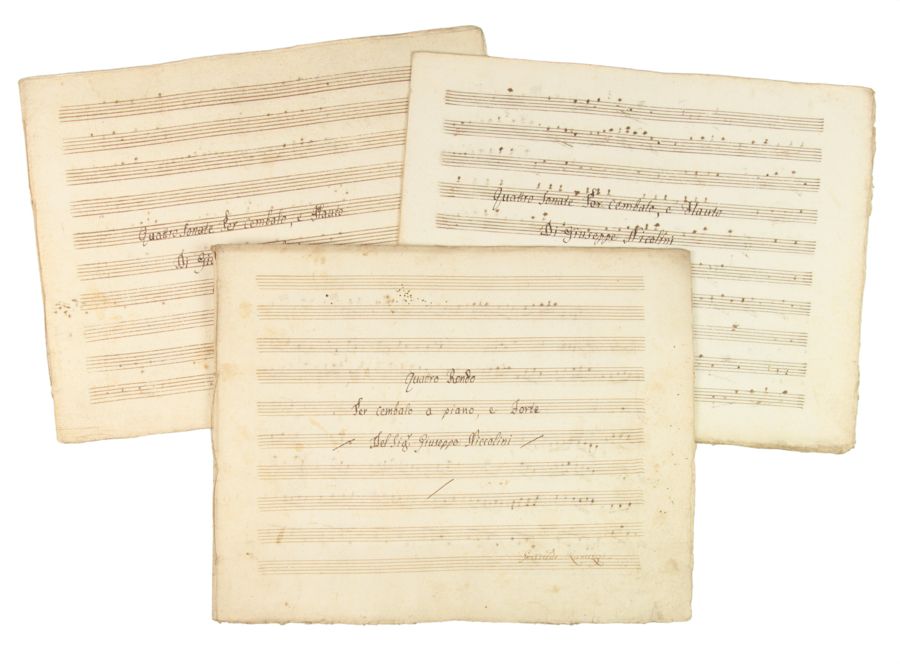 Quatro Sonate Per Cembalo, e Flauto
Di Giu
Quatro Sonate Per Cembalo, e Flauto
Di Giuseppe Nicolini
Quatro Rondo
Per Cembalo a piano, e Forte
Del Sig.r Giuseppe Niccolini